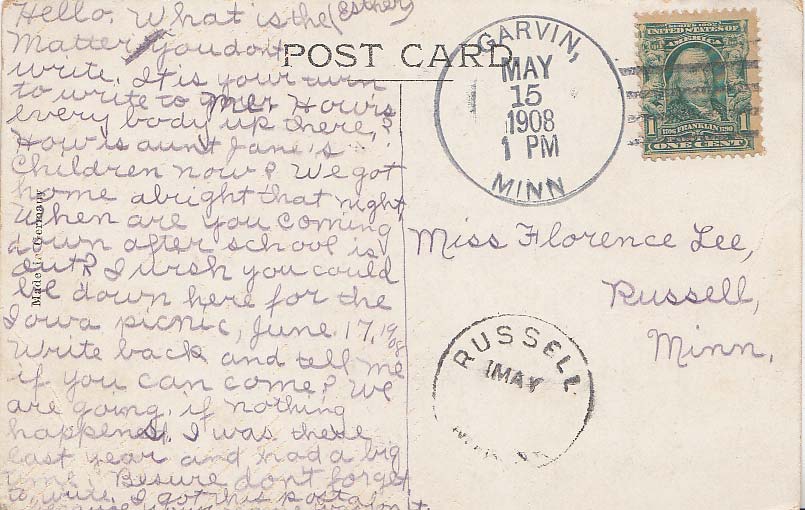 Hello. What is the (Esther)
Matter you don't
write. It is your turn
to write to me. How's
every body up there,?
How is aunt Jane's
Children now? We got
home alright that night,
When are you coming
down after school is
out? I wish you could
be down here for the
Iowa picnic, June 17, 1908
Write back and tell me
if you can come? We
are going, if nothing
happenes, I was there
last year and had a big
time. Besure dont forget
to write. I got this postal
POST CARD
Made in Germany
GARVIN,
MAY
15
1908
1 PM
MINN
SERIES 1902
UNITED STATES OF
AMERICA
1706 FRANKLIN 1790
1 1
ONE CENT
Miss Florence Lee,
Russell,
Minn.
RUSSELL
MAY